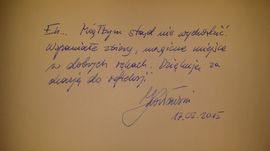 Eh... Mógłbym stąd nie wychodzić.
Wspaniałe zbiory, magiczne miejsce
w dobrych rękach. Dziękuję za
okazję do refleksji.
17.02.2015